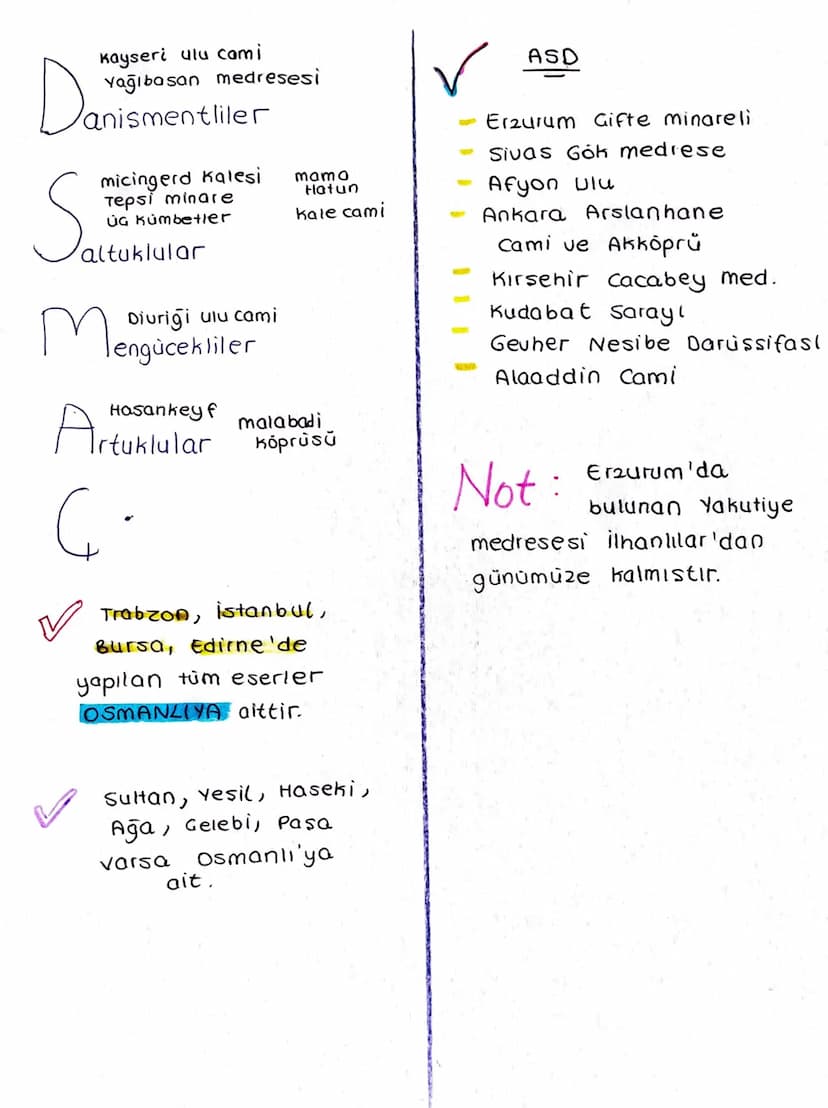 Kayseri ulu cami
Yağıbasan medresesi
Danismentliler
micingerd Kalesi
Tepsi minare
üG Kümbetler
mama
Hatun
Kale cami
Saltuklular
Divriği ulu cami
Mengücekliler
Hasankeyf
malabadi
Köprüsü
Artuklular
Ç.
Trabzon, istanbul,
Bursa, Edirne'de
yapılan tüm eserler
OSMANLIYA aittir.
Sultan, Yesil, Haseki,
Ağa, Gelebi, Pasa
varsa Osmanlı'ya
ait.
ASD
- Erzurum Gifte minareli
- Sivas Gök medrese
- Afyon ulu
- Ankara Arslanhane
cami ve Akköprü
- Kırsehir Cacabey med.
- Kudabat Sarayı
- Gevher Nesibe Darüssifası
- Alaaddin Cami
Not: Erzurum'da
bulunan Yakutiye
medresesi İlhanlılar'dan
günümüze kalmıstır.